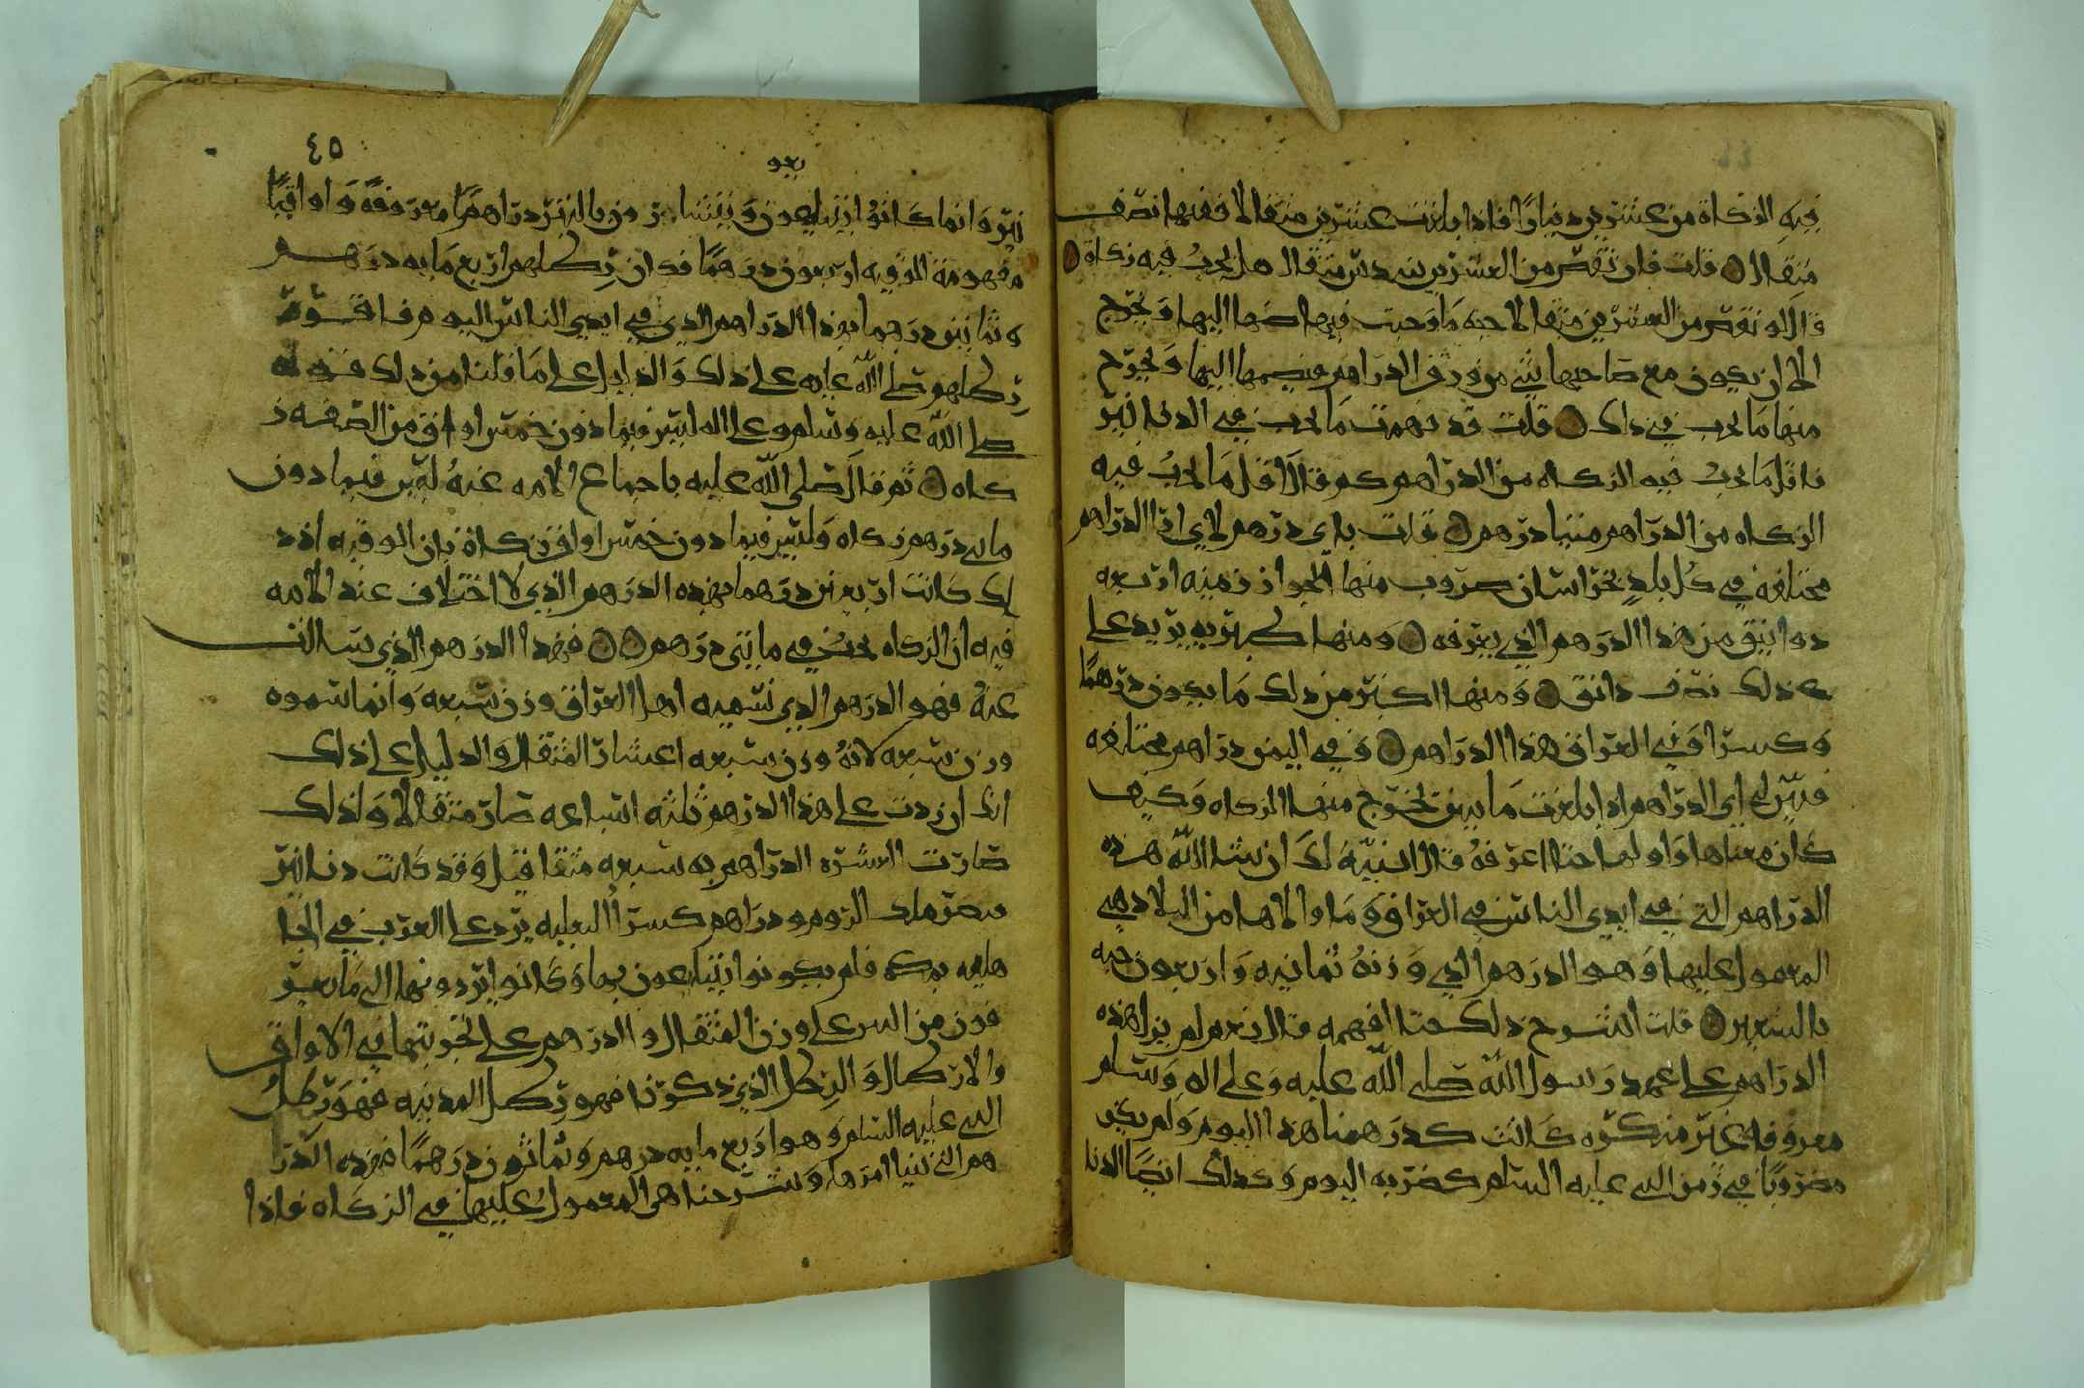 فيه الزكاة من عشرين دينارا فاذا بلغت عشرين مثقالا ففيها نصف
مثقال ۞ قلت فان نقص من العشرين سدس مثقال هل يجب فيه زكاة ۞
قال لو نقص من العشرين مثقالا حبه ما وجبت فيها
الا ان يكون مع صاحبها شي من ورق الدراهم فيضمها اليها ويخرج
منها ما يجب في ذلك ۞ قلت قد فهمت ما يجب في الدنانير
فاقل ما يجب فيه الزكاه من الدراهم كم قال اقل ما يجب فيه
الزكاه من الدراهم مئتيا درهم ۞ قلت باي درهم لاني ارا الدراهم
مختلفه في كل بلد بخراسان ضروب منها الجواز زمنيه اربعه
دوانيق من هذا الدرهم الذي يعرفه ۞ ومنها طبريه يزيد على
ذلك نصف دانق ۞ ومنها اكثر من ذلك ما يكون درهما
وكسرا وفي العراق هذا الدراهم ۞ وفي اليمن دراهم مختلفه
فبين لي اي الدراهم اذا بلغت مايتين تخرج منها الزكاه وكيف
كان معناها واولها حتا اعرفه قال انبيه لك ان شا الله هذه
الدراهم التي في ايدي الناس في العراق وما والاها من البلاد هي
المعمول عليها وهو الدرهم الذي وزنه ثمانيه واربعون حبه
بالشعير ۞ قلت اشرح ذلك حتا افهمه قال نعم لم تزل هذه
الدراهم على عهد رسول الله صلى الله عليه وعلى اله وسلم
معروفه غير منكره كانت كدرهمنا هذا اليوم ولم يكن
مضروبا في زمن النبي عليه السلام كضربه اليوم وكذلك ايضا الدنا
٤٥
نير وانما كانوا يتبايعون ويتشارون بالتبر دراهما معروفة واواقيا
مفهومة الوقيه اربعون درهما فكان رطلهم اربع مايه درهم
وثمانين درهما بهذا الدراهم الذي في ايدي الناس اليوم
رطلهم صلى الله عليه على ذلك والدليل على ما قلنا من ذلك قوله
صلى الله عليه وسلم وعلى اله ليس فيما دون خمس اواق من الصفه ز
كاه ۞ ثم قال صلى الله عليه باجماع الامه عنه ليس فيما دون
مايتي درهم زكاه وليس فيما دون خمس اواق زكاة فان الوقيه اذ ذ
لك كانت اربعين درهما بهذه الدرهم الذي لا اختلاف عند الامه
فيه ان الزكاه تجب في مايتي درهم ۞۞ فهذا الدرهم الذي سالت
عنه فهو الدرهم الذي تسميه اهل العراق وزن سبعه وانما سموه
وزن سبعه لانه وزن سبعه اعشار المثقال والدليل على ذلك
انك ان زدت على هذا الدرهم ثلثه اسباعه صار مثقالا ولذلك
صارت العشره الدراهم به سبعه مثاقيل وقد كانت دنانير
قيصر ملك الروم ودراهم كسرا البغليه ترد على العرب في الجا
هليه بمكه فلم يكونوا يتبايعون بها وكانوا يردونها الى ما يعر
فون من التبر على وزن المثقال والدرهم على التجزيه بهما في الاواق
والارطال والرطل الذي ذكرنا فهو رطل المدينه فهو رطل
النبي عليه السلام وهو اربع مايه درهم وثمانون درهما فهذه الدرا
هم التي بينا امرها وشرحنا هي المعمول عليها في الزكاه فاذا